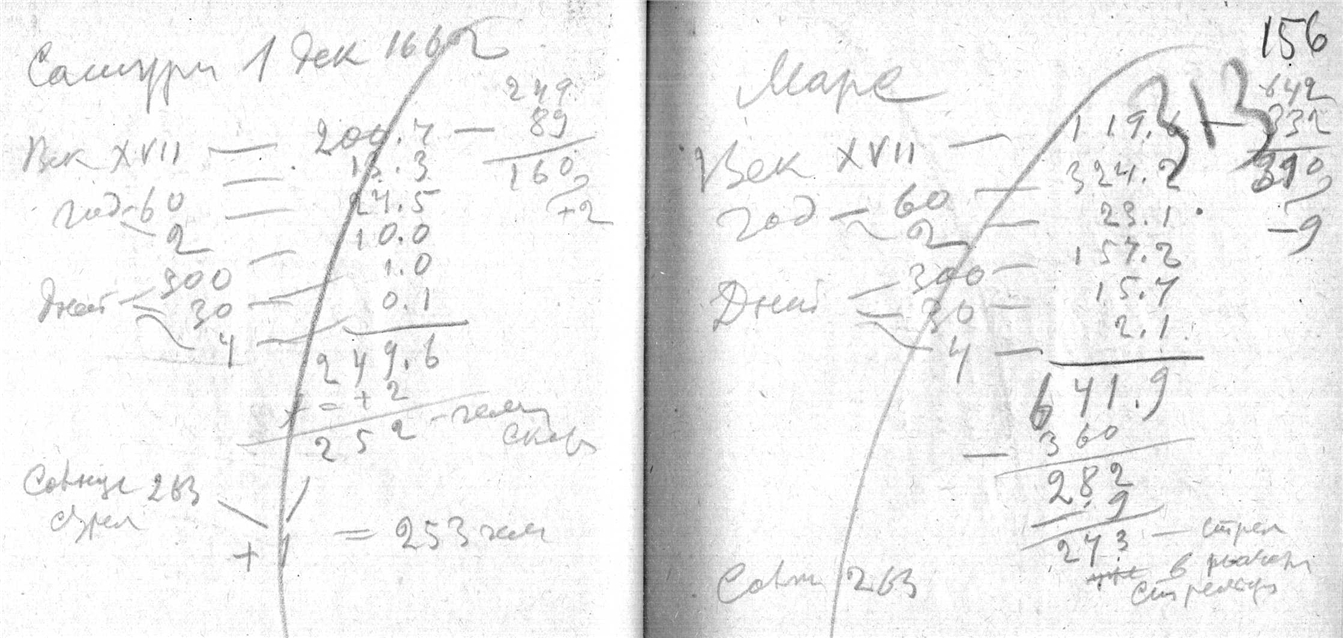 Сатурн 1 дек 1662
249
Век XVII — 200.7 — 89
13.3 160
год 60 — 24.5 +2
2 10.0
Дней 300 — 1.0
30 — 0.1
4 — 249.6
+ = + 2
252 —
263
+ 1 = 253 гел
156
Марс 313 642
Век XVII — 119. 332
324.2 310
год — 60 — 23.1 -9
2 — 157.2
Дней — 300 — 15.7
30 — 2.1
4 — 641.9
— 360
282
9
273 — стрел
в
стрельца
263